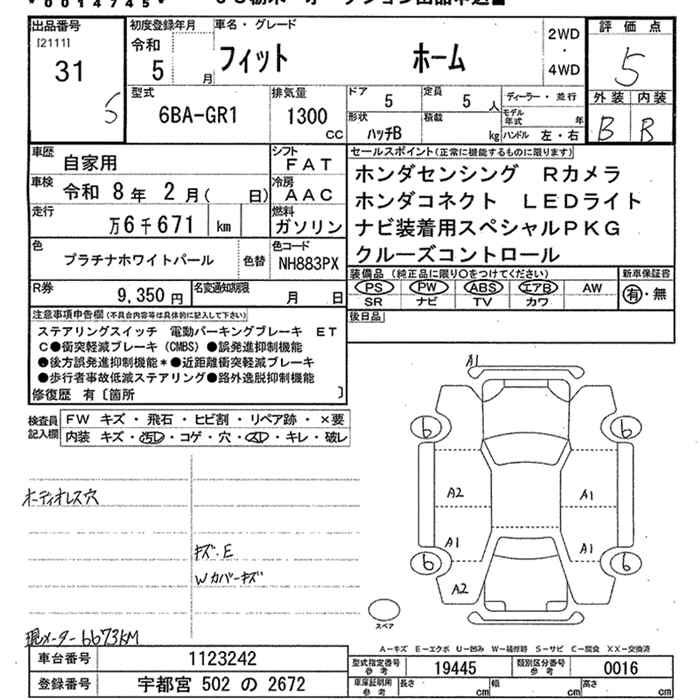 *0014745*
出品番号 初度登録年月 車名・グレード 2WD ・ 4WD 評価点
[2111] 31 S 令和 5 月 フィット ホーム 5
型式 排気量 ドア 5 定員 5 人 ディーラー・並行 外装 内装
6BA-GR1 1300 CC 形状 ハッチB 積載 kg モデル年式 年 ハンドル 左・右 B B
車歴 自家用 シフト FAT セールスポイント(正常に機能するものに限ります)
車検 令和 8年 2月( 日) 冷房 AAC ホンダセンシング Rカメラ
走行 万6千671 km 燃料 ガソリン ホンダコネクト LEDライト
ナビ装着用スペシャルPKG
色 プラチナホワイトパール 色替 色コード NH883PX クルーズコントロール
装備品(純正品に限り○をつけてください) 新車保証書
R券 9,350円 名変通知期限 月 日 PS PW ABS エアB AW 有・無
SR ナビ TV カワ
注意事項申告欄(不具合内容等は具体的に記入して下さい) 後日品
ステアリングスイッチ 電動パーキングブレーキ ET
C●衝突軽減ブレーキ(CMBS)●誤発進抑制機能
●後方誤発進抑制機能*●近距離衝突軽減ブレーキ
●歩行者事故低減ステアリング●路外逸脱抑制機能
修復歴 有〔箇所 〕
検査員記入欄 FW キズ・飛石・ヒビ割・リペア跡・×要
内装 キズ・汚レ・コゲ・穴・スレ・キレ・破レ
A1
6 6
A2 A1
オーディオレス穴
A1 A1
キズ・E
Wカバーキズ
6 6
A2
スペア
現メーター6673KM
A-キズ E-エクボ U-凹み W-補修跡 S-サビ C-腐食 XX-交換済
車台番号 1123242 型式指定番号 参考 19445 類別区分番号 参考 0016
登録番号 宇都宮 502 の 2672 車庫証明用 参考 長さ cm 幅 cm 高さ cm